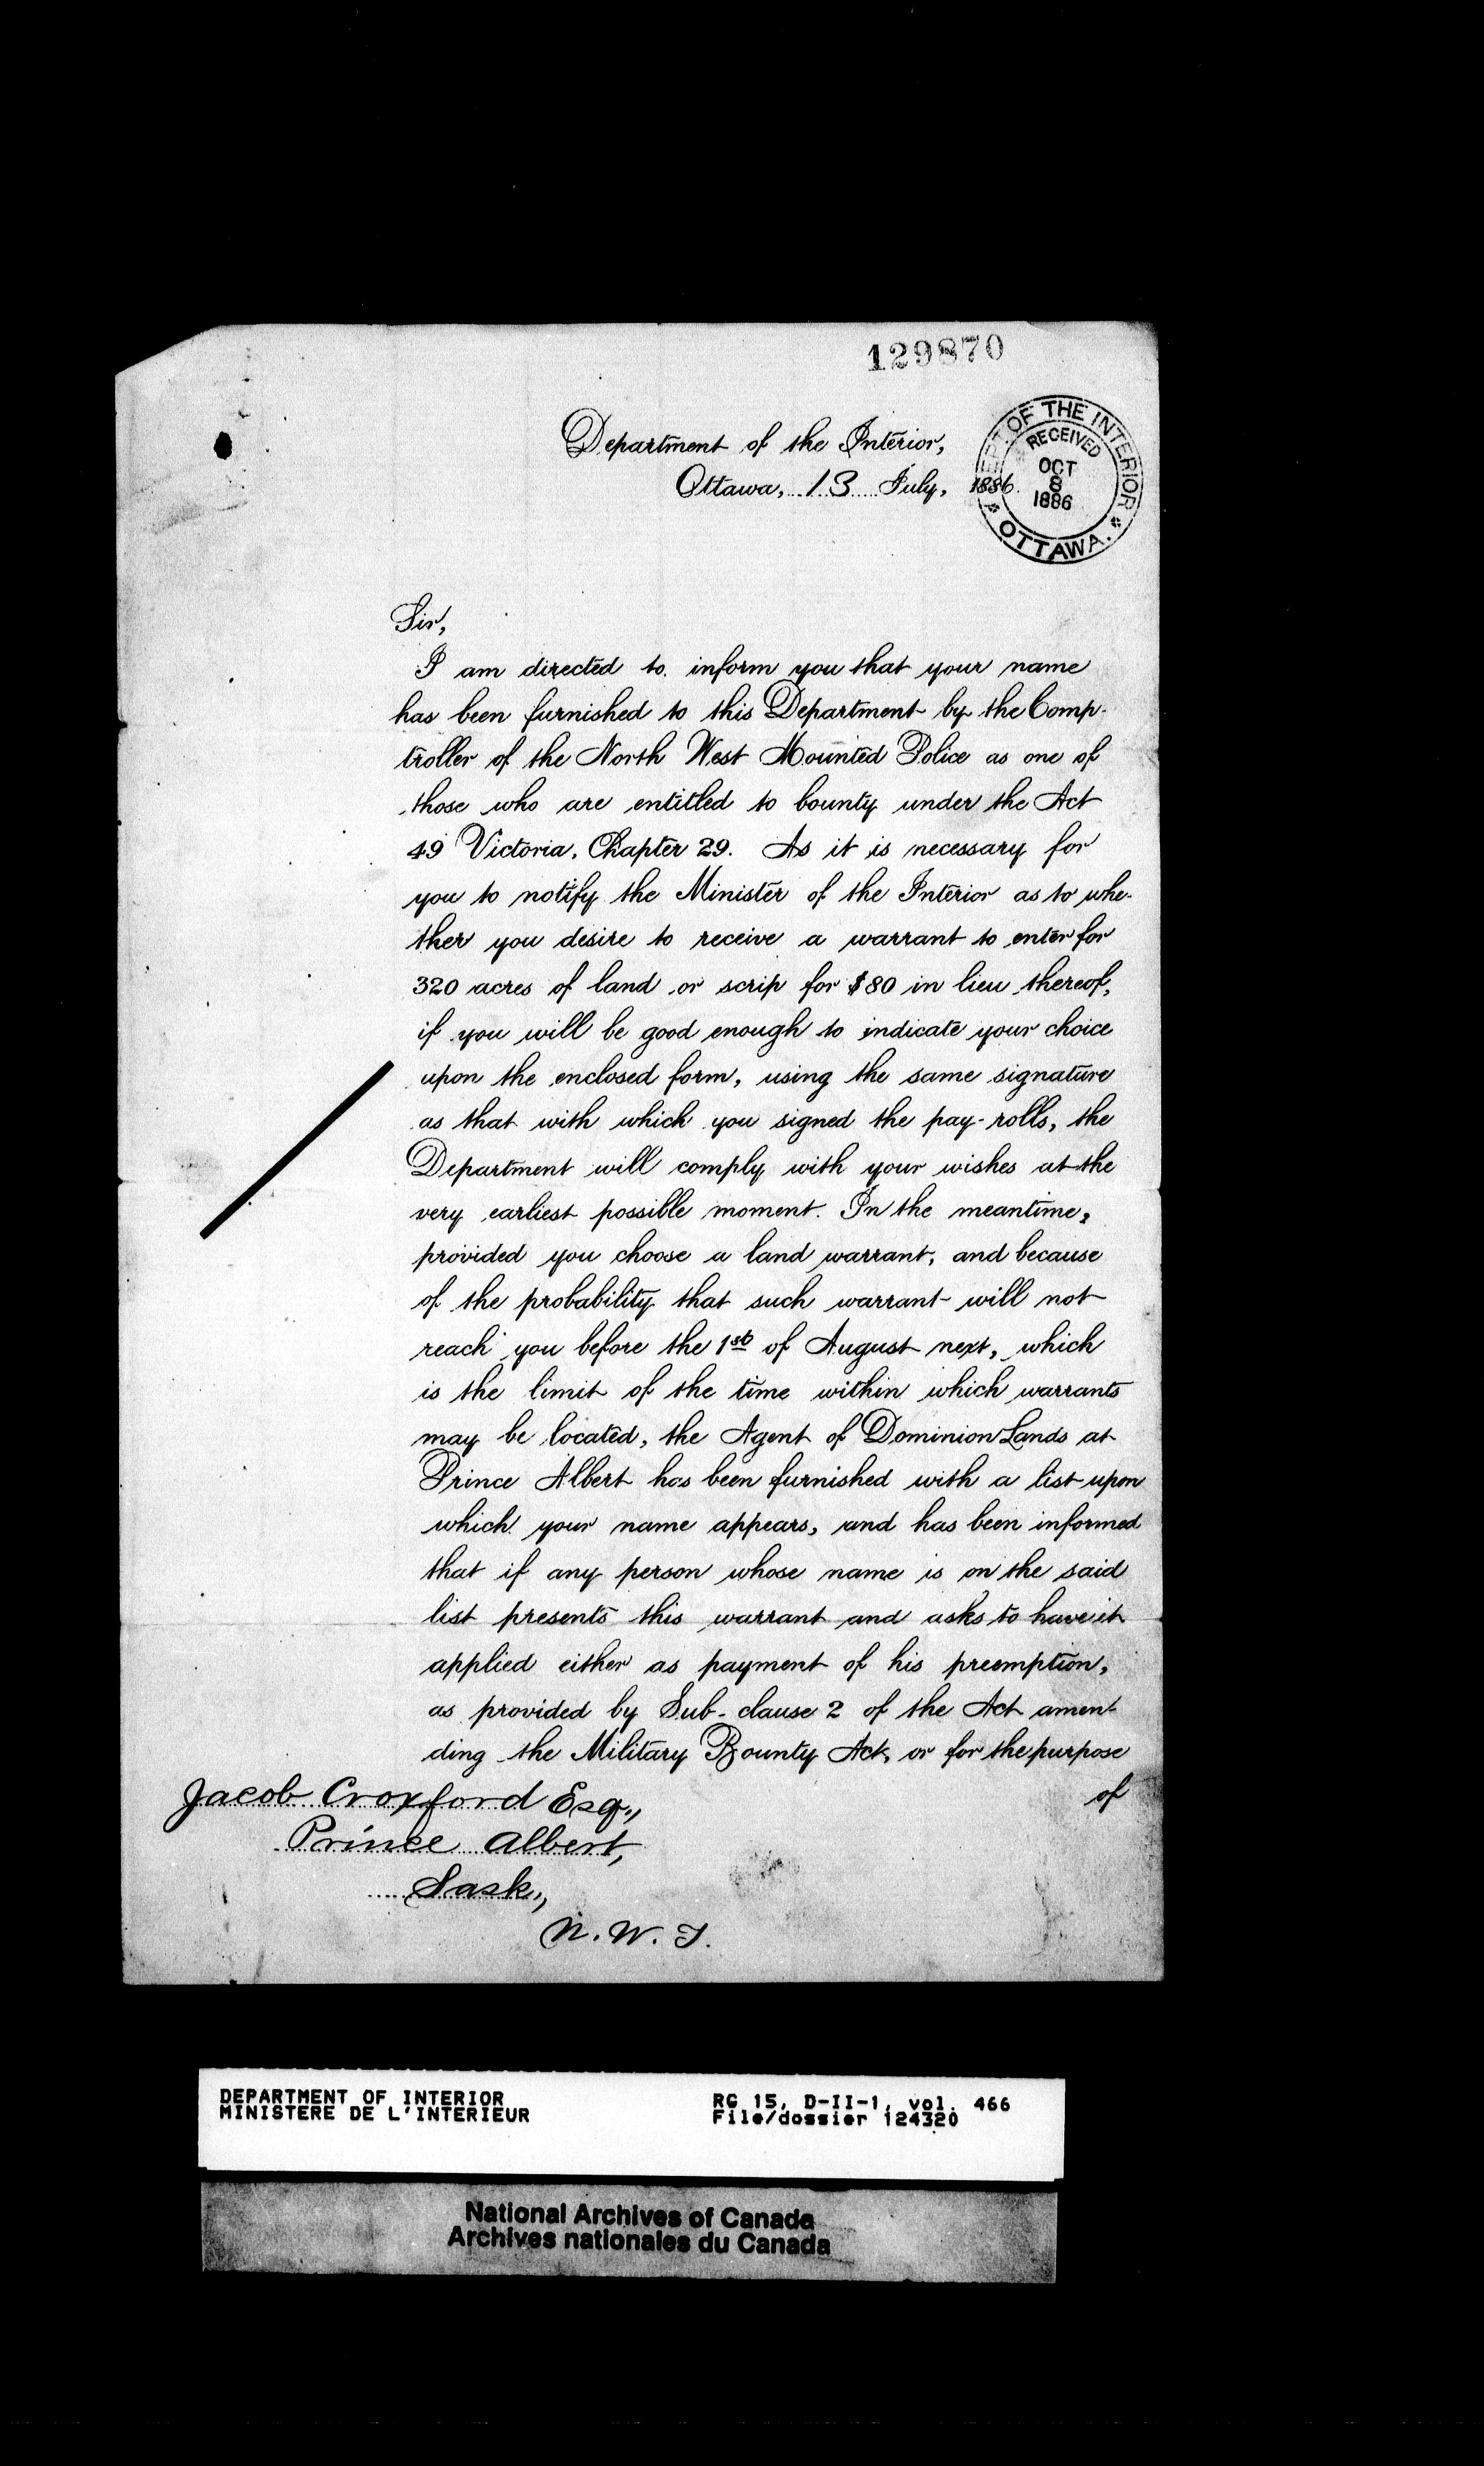 129870
Department of the Interior,
Ottawa, 13 July, 1886.
DEPT OF THE INTERIOR
RECEIVED
OCT
8
1886
OTTAWA.
Sir,
I am directed to inform you that your name
has been furnished to this Department by the Comp-
troller of the North West Mounted Police as one of
those who are entitled to bounty under the Act
49 Victoria, Chapter 29. As it is necessary for
you to notify the Minister of the Interior as to whe-
ther you desire to receive a warrant to enter for
320 acres of land or scrip for $80 in lieu thereof,
if you will be good enough to indicate your choice
upon the enclosed form, using the same signature
as that with which you signed the pay-rolls, the
Department will comply with your wishes at the
very earliest possible moment. In the meantime,
provided you choose a land warrant, and because
of the probability that such warrant will not
reach you before the 1st of August next, which
is the limit of the time within which warrants
may be located, the Agent of Dominion Lands at
Prince Albert has been furnished with a list upon
which your name appears, and has been informed
that if any person whose name is on the said
list presents this warrant and asks to have it
applied either as payment of his preemption,
as provided by Sub-clause 2 of the Act amen-
ding the Military Bounty Act, or for the purpose
of
Jacob Croxford Esq.,
Prince Albert,
Sask.,
N.W.T.
DEPARTMENT OF INTERIOR
MINISTERE DE L'INTERIEUR
RG 15, D-II-1, vol. 466
File/dossier 124320
National Archives of Canada
Archives nationales du Canada